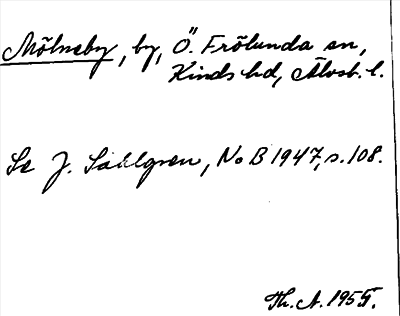 Mölneby, by, Ö. Frölunda sn,
Kinds hd, Älvsb. l.
Se J. Sahlgren, NoB 1947, s. 108.
Th. A. 1955.